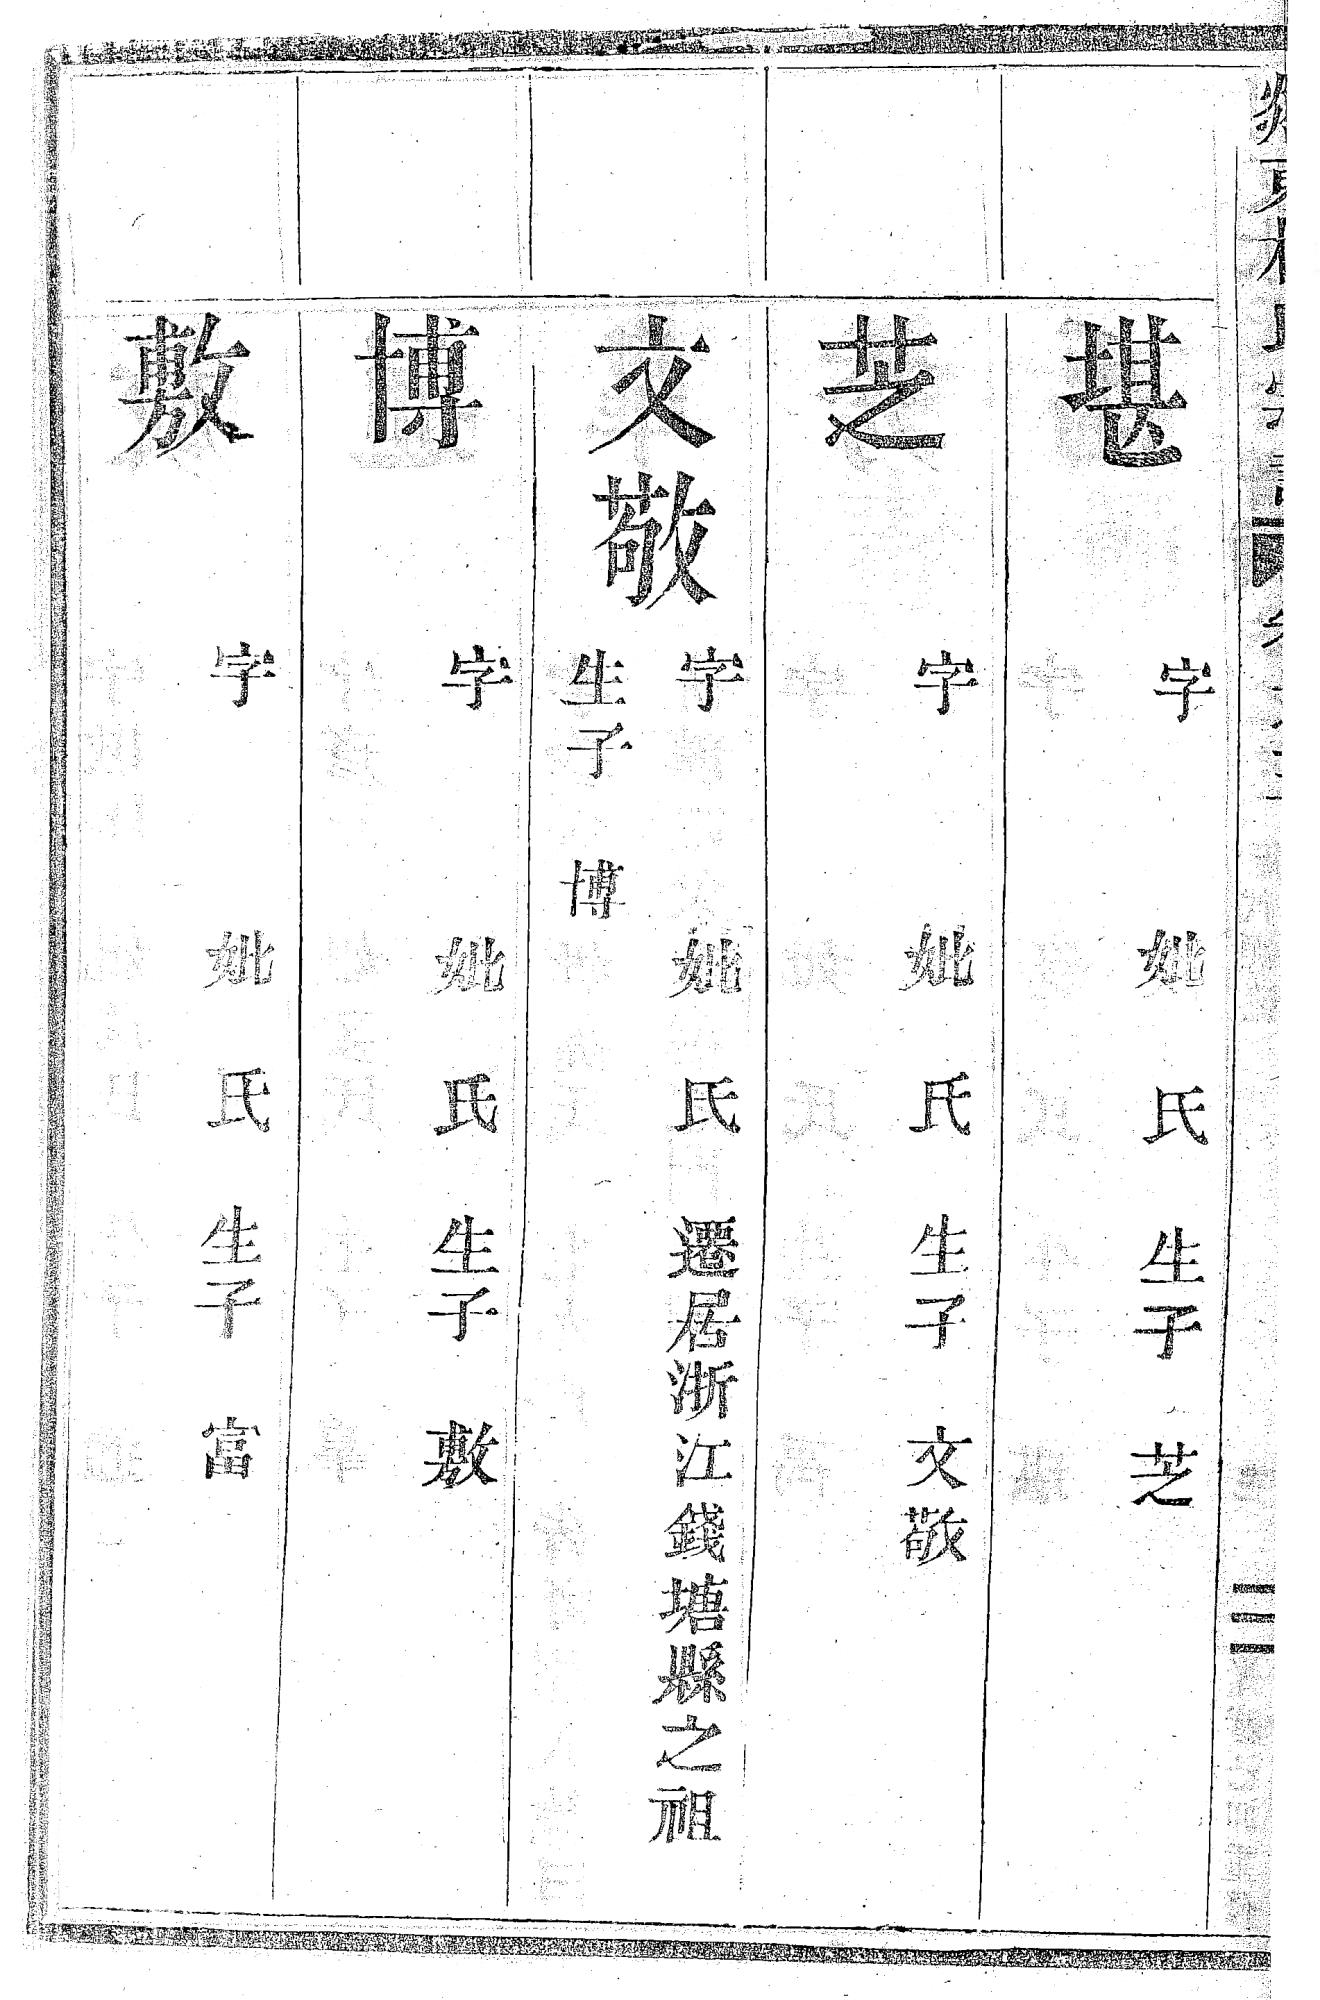 堪 字 妣 氏 生子 芝
芝 字 妣 氏 生子 文敬
文敬 字 妣 氏 遷居浙江錢塘縣之祖
生子 博
博 字 妣 氏 生子 敷
敷 字 妣 氏 生子 富